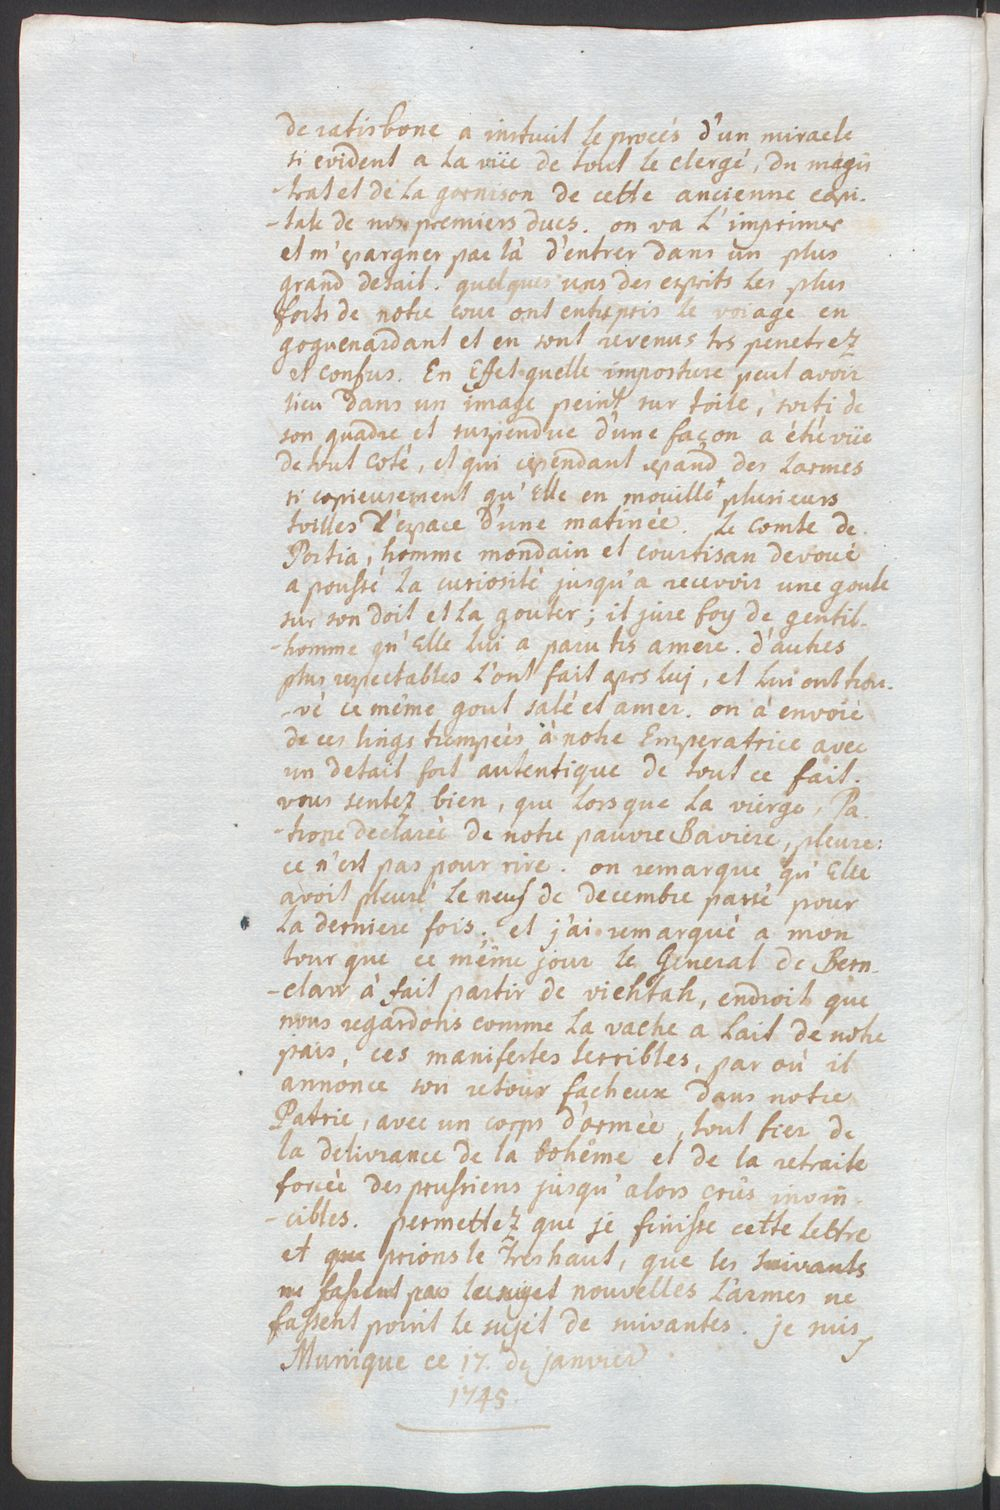 de ratisbone a instruit le procés d'un miracle
si evident a la vüe de tout le clergé, du magis
-trat et de la garnison de cette ancienne capi-
-tale de nos premiers ducs. on va l'imprimer
et m'epargner par là d'entrer dans un plus
grand detail. quelques uns des esprits les plus
forts de notre cour ont entrepris le voiage en
goguenardant et en sont revenus trs penetrez
et confus. En Effet quelle imposture peut avoir
lieu dans un image peint sur toile, sorti de
son quadre et suspendue d'une façon a être vüe
de tout coté, et qui cependant repand des larmes
si copieusement qu'Elle en mouille plusieurs
toilles l'espace d'une matinée. Le Comte de
Portia, homme mondain et courtisan devoué
a poussé la curiosité jusqu'a recevoir une goute
sur son doit et la gouter; il jure foy de gentil-
-homme qu'Elle lui a paru trs amere. d'autres
plus respectables l'ont fait aprs luj, et lui ont trou-
-vé ce même gout salé et amer. on a envoié
de ces lings trempées à notre Emperatrice avec
un detail fort autentique de tout ce fait.
vous sentez bien, que lorsque la vierge, Pa-
-trone declarée de notre pauvre Baviere, pleure:
ce n'est pas pour rire. on remarque qu'Elle
avoit pleuré le neuf de decembre passé pour
la derniere fois. et j'ai remarqué a mon
tour que ce même jour le General de Bern-
-clau à fait partir de viehtah, endroit que
nous regardons comme la vache a lait de notre
païs, ces manifestes terribles, par où il
annonce son retour facheux dans notre
Patrie, avec un corps d'armée, tout fier de
la delivrance de la bohême et de la retraite
forcée des prussiens jusqu'alors crûs invin-
-cibles. permettez que je finisse cette lettre
et que prions le Treshaut, que les suivants
ne fassent pas le sujet nouvelles l'armes ne
fassent point le sujet de suivantes. je suis
Munique ce 17. de janvier
1745.